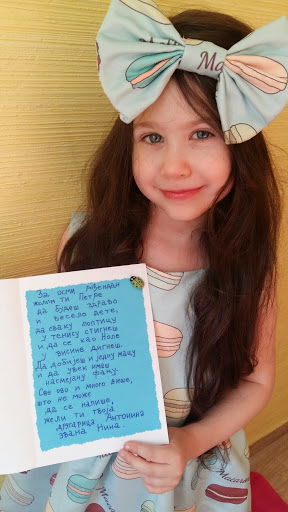 За осми рођендан
желим ти Петре
да будеш здраво
и весело дете,
да сваку лоптицу
у тенису стигнеш
и да се као Ноле
у висине дигнеш.
Да добијеш и једну мацу
и да увек имаш
насмејану фацу.
Све ово и много више,
што не може
да се напише,
жели ти твоја
другарица Антонина
звана Нина.